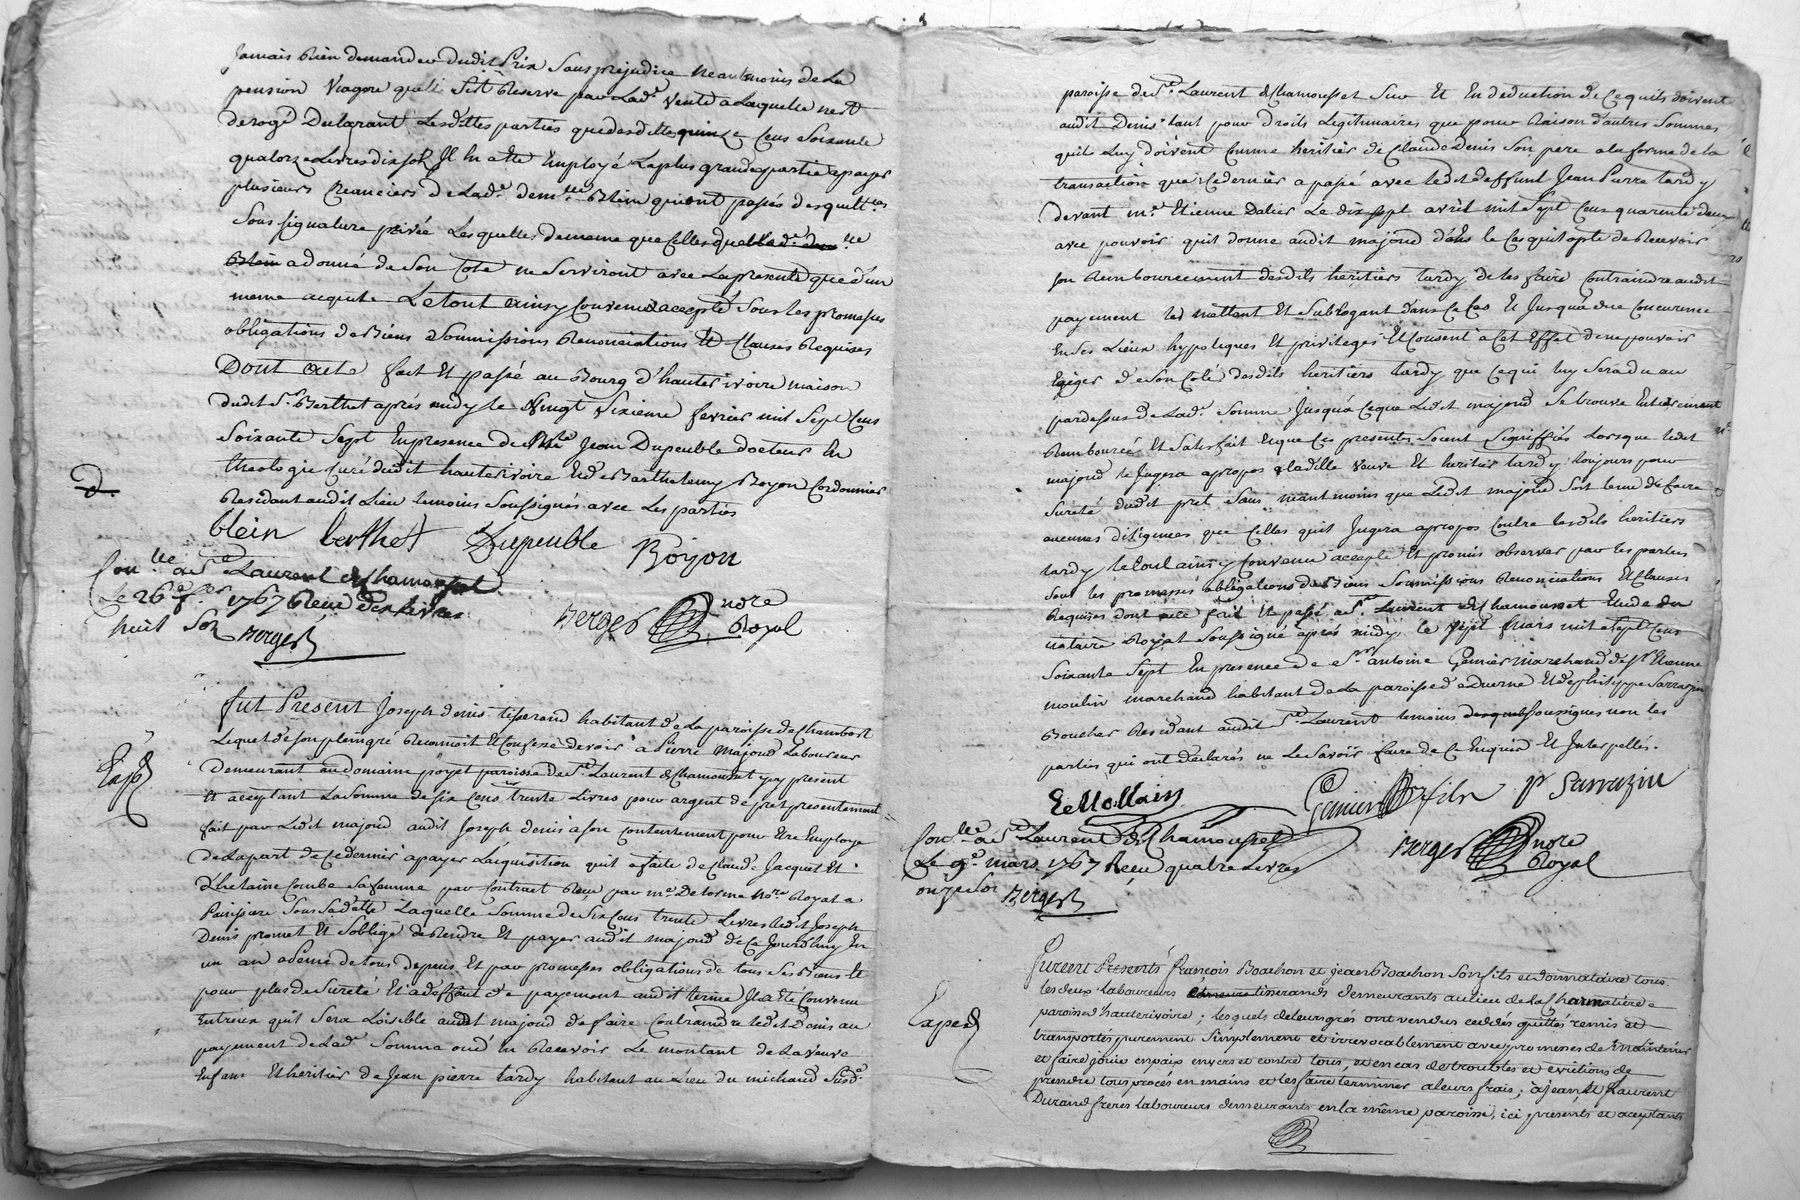 Jamais Rien demander dudit Prix Sans prejudice neantmoins de La
pension Viagere quelle S'est Reservé par Lade. Vente a Laquelle nest
derogé Declarant Lesdittes parties que desdittes quinze Cens Soixante
quatorze Livres dix sols Il En a été Employé La plus grande partie a payer
plusieurs Creanciers de Lade. demlle. Blein qui ont passés des quittces
Sous signature privée Lesquelles de meme que Celles que
Blein a donné de Son Coté ne Serviront avec La presente que d'un
meme acquit Le tout ainsy Convenu & accepté Sous les promesses
obligations de Biens Soumissions Renonciations Et Clauses Requises
Dont acte fait Et passé au Bourg d'hauterivoire maison
dudit Sr. Berthet aprés midy le Vingt Sixieme fevrier mil Sept Cens
Soixante Sept En presence de Mre Jean Dupeuble docteur En
theologie Curé dudit hauterivoire Et de Barthelemy Boyon Cordonnier
Residant audit Lieu temoins Soussignés avec Les parties
blein berthet Dupeuble Boyon
Conllé a St. Laurent de Chamousset
Le 26e fer 1767 Receu dix livres
huit sols Berger
Berger nore
Royal
fut Present Joseph denis tisserand habitant de La paroisse de Chambost
Lequel de son plein gré Reconnoit Et Confesse devoir a Pierre Majoud Laboureur
Demeurant au domaine proyet paroisse de St. Laurent de Chamousset icy present
Et acceptant La Somme de six Cens trente Livres pour argent de pret presentement
Expedé
fait par Ledit majoud audit Joseph denis a son Contentement pour Etre Employé
de La part de Ce dernier a payer L'acquisition quil a faite de Claude Jacquet Et
d'helaine Combe Sa femme par Contract Reçu par me. Delorme nore. Royal a
Panissiere Sous Sa datte Laquelle Somme de Six Cens trente Livres Ledit Joseph
Denis promet Et S'oblige de Rendre Et payer audit majoud de Ce Jourdhuy En
un an a peine de tous depens Et par promesses obligations de tous Ses Biens Et
pour plus de Sureté Et a deffaut de payement audit terme Il a été Convenu
Entreux quil Sera Loisible audit majoud de faire Contraindre Ledit Denis au
payement de Lade. Somme ou d'en Recevoir Le montant de La veuve
Enfans Et heritier de Jean pierre tardy habitant au Lieu du michaud Susde.
paroisse de St. Laurent de Chamousset Sur Et En deduction de Ce quils doivent
audit Denis tant pour Droits Legitimaires que pour Raison d'autres Sommes
quils Luy doivent Comme heritier de Claude Denis Son pere a la forme de la
transaction que Ce dernier a passé avec Ledit deffunt Jean Pierre tardy
devant me. Etienne Dalier Le dix sept avril mil Sept Cens quarente deux
avec pouvoir quil donne audit majoud dans le Cas quil opte de Recevoir
son Rembourcement desdits heritiers tardy de les faire Contraindre audit
payement Le mettant Et Subrogant dans Ce Cas Et Jusqu'a due Concurrence
En Ses Lieux hypoteques Et privileges Et Consent a Cet Effet de ne pouvoir
Exiger de Son Coté desdits heritiers tardy que Ce qui luy Sera du au
pardessus de Lade. Somme Jusqu'a Ceque Ledit majoud Se trouve Entierement
Rembourcé Et Satisfait Et que Ces presentes Soient Signiffiés Lorsque Ledit
majoud le Jugera apropos a Laditte Veuve Et heritier tardy toujours pour
Sureté dudit pret Sans neantmoins que Ledit majoud Soit tenu de faire
aucunes diligences que Celles quil Jugera apropos Contre Lesdits heritiers
tardy le tout ainsy Convenu accepté Et promis observer par les parties
Sous les promesses obligations de Biens Soumissions Renonciations Et Clauses
Requises dont acte fait Et passé a St. Laurent de Chamousset Etude du
notaire Royal Soussigné aprés midy le Sept Mars mil Sept Cens
Soixante Sept En presence de Sr. antoine Genier marchand de St. Etienne
moulin marchand habitant de La paroisse Et de philippe Sarrazin
Boucher Residant audit St. Laurent temoins Soussignés non les
parties qui ont declarés ne Le Savoir faire de Ce Enquis Et Interpellés.
Genier fils pr Sarrazin
Conllé a St. Laurent de Chamousset
Le 9e. mars 1767 Receu quatre Livres
onze sols Berger
Berger nore
Royal
furent Presents françois Boachon et jean Boachon Son fils et donnataire tous
les deux laboureurs tisserands demeurants au lieu de la Charmatiere
paroisse d'hauterivoire; lesquels de leurs grés ont vendus ceddés quittés remis et
Expedé
transportés purement simplement et irrevocablement avec promesses de maintenir
et faire jouir en paix envers et contre tous, et en cas de troubles et evictions de
prendre tous procès en mains et les faire terminer a leurs frais; à jean & Laurent
Durand freres laboureurs demeurants en la même paroisse, ici presents et aceptants